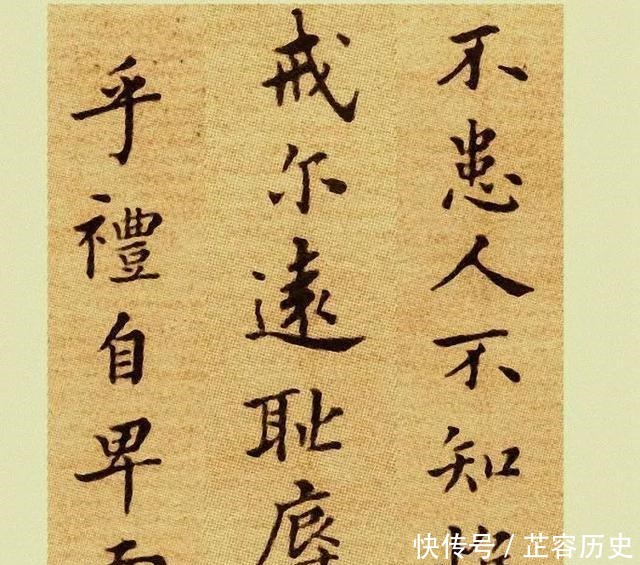 不患人不知惟
戒尔遠耻辱
乎禮自卑
快传号 / 芷容历史